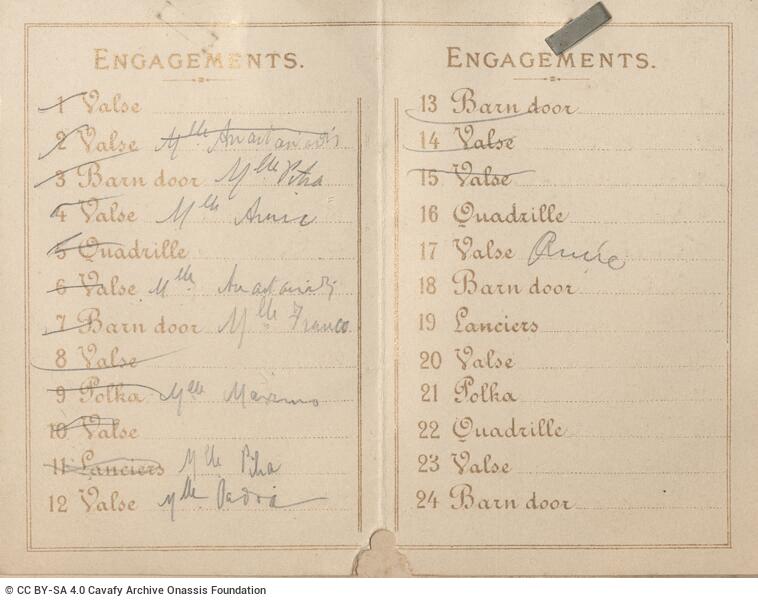 ENGAGEMENTS.
1 Valse
2 Valse Mlle
3 Barn door Mlle Piha
4 Valse Mlle Annie
5 Quadrille
6 Valse Mlle
7 Barn door Mlle Franco
8 Valse
9 Polka Mlle
10 Valse
11 Lanciers Mlle Piha
12 Valse Mlle
ENGAGEMENTS.
13 Barn door
14 Valse
15 Valse
16 Quadrille
17 Valse
18 Barn door
19 Lanciers
20 Valse
21 Polka
22 Quadrille
23 Valse
24 Barn door
© CC BY-SA 4.0 Cavafy Archive Onassis Foundation